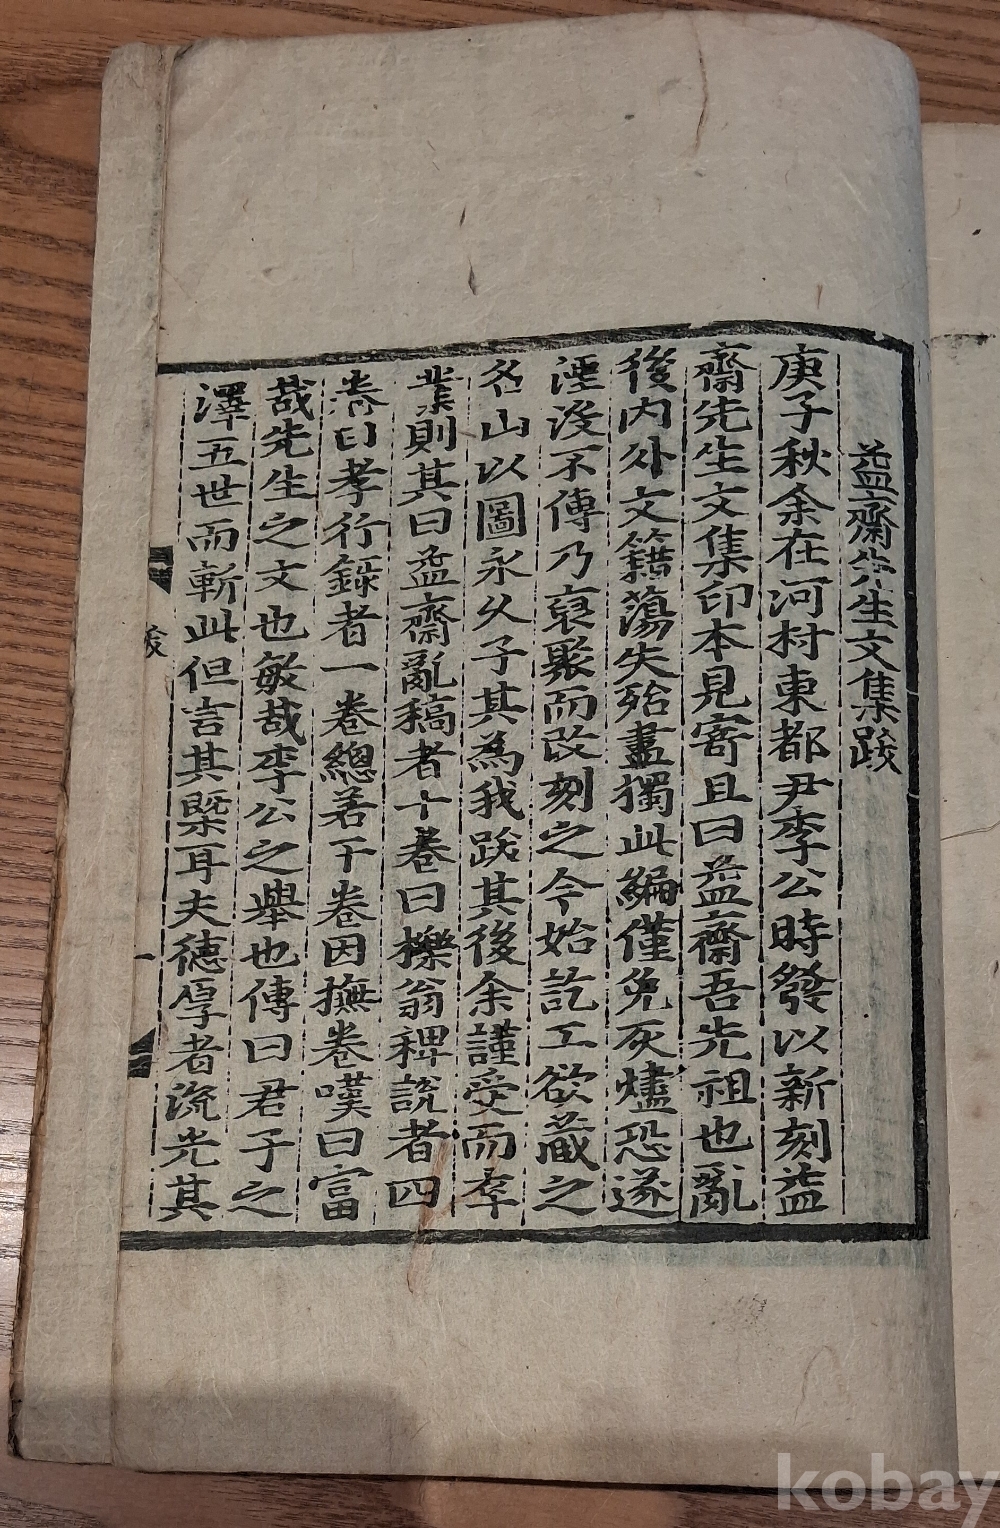 益齋先生文集跋
庚子秋余在河村東都尹李公時發以新刻益
齋先生文集印本見寄且曰益齋吾先祖也亂
後內外文籍蕩失殆盡獨此編僅免灰燼恐遂
湮沒不傳乃裒聚而改刻之今始訖工欲藏之
名山以圖永久子其為我跋其後余謹受而卒
業則其曰益齋亂稿者十卷曰櫟翁稗說者四
卷曰孝行錄者一卷總若干卷因撫卷嘆曰富
哉先生之文也敏哉李公之舉也傳曰君子之
澤五世而斬此但言其槩耳夫德厚者流光其
跋
一
kobay